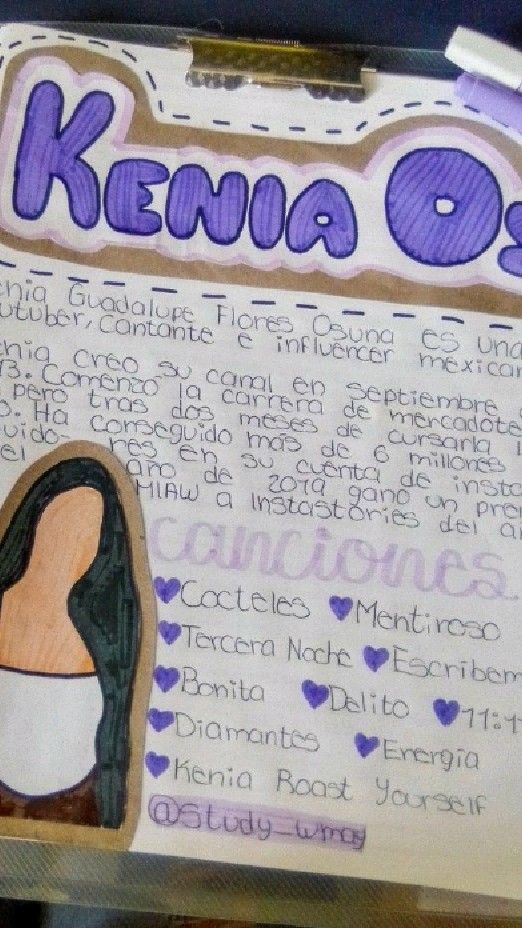 Kenia Os
enia Guadalupe Flores Osuna es una
utuber, cantante e influencer mexican
enia creo su canal en septiembre
13. Comenzó la carrera de mercadote
pero tras dos meses de cursarla l
o. Ha conseguido más de 6 millones
uido- res en su cuenta de insta
el año de 2019 gano un prem
MIAW a Instastories del añ
canciones
Cocteles Mentiroso
Tercera Noche Escribem
Bonita Delito 11:1
Diamantes Energia
Kenia Roast Yourself
@Study_wmay